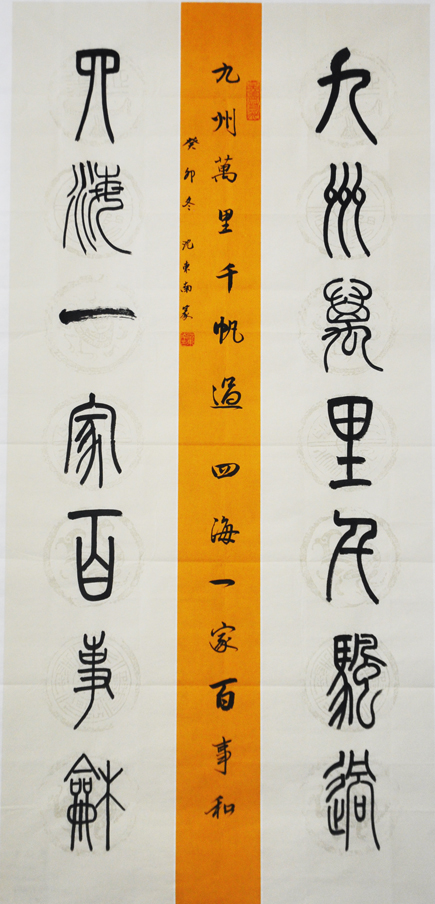 九州萬里千颿過
九州萬里千帆過四海一家百事和
癸卯冬東南篆
四海一家百事龢